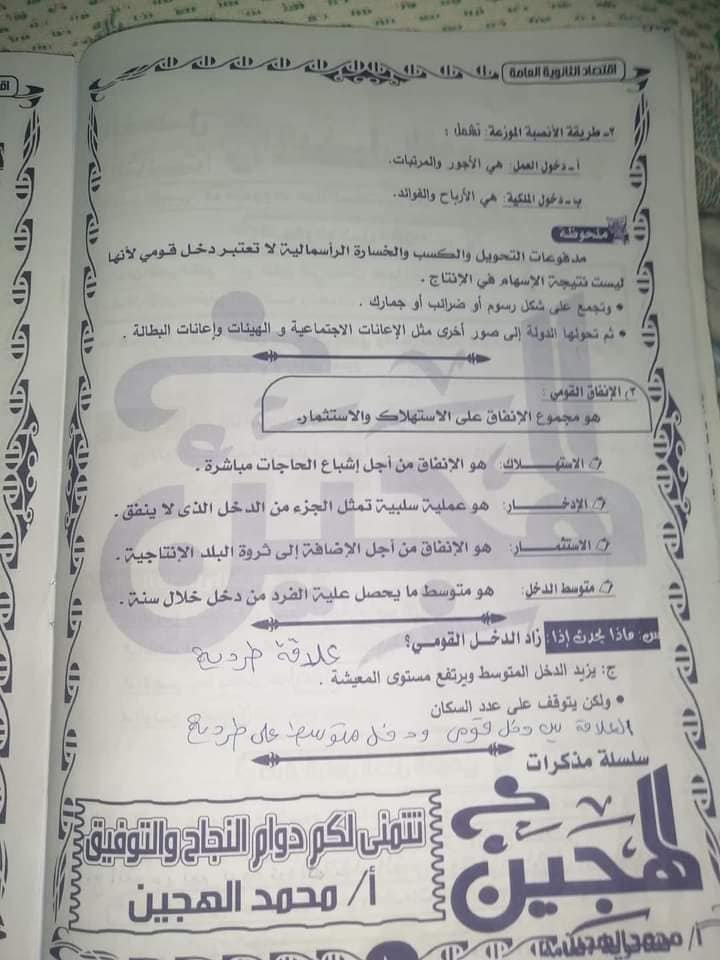 اقتصاد الثانوية العامة
٢- طريقة الأنصبة الموزعة: تشمل :
أ- دخول العمل: هي الأجور والمرتبات.
ب- دخول الملكية: هي الأرباح والفوائد.
ملحوظة
مدفوعات التحويل والكسب والخسارة الرأسمالية لا تعتبر دخل قومي لأنها
ليست نتيجة الإسهام في الإنتاج .
• وتجمع على شكل رسوم أو ضرائب أو جمارك .
• ثم تحولها الدولة إلى صور أخرى مثل الإعانات الاجتماعية و الهيئات وإعانات البطالة .
٣) الإنفاق القومي :
هو مجموع الإنفاق على الاستهلاك والاستثمار.
الاستهـــلاك: هو الإنفاق من أجل إشباع الحاجات مباشرة .
الإدخـــار: هو عملية سلبية تمثل الجزء من الدخل الذى لا ينفق .
الاستثمـــار: هو الإنفاق من أجل الإضافة إلى ثروة البلد الإنتاجية .
متوسط الدخل: هو متوسط ما يحصل علية الفرد من دخل خلال سنة .
س: ماذا يحدث إذا: زاد الدخل القومي؟
علاقة طردية
ج: يزيد الدخل المتوسط ويرتفع مستوى المعيشة .
• ولكن يتوقف على عدد السكان
العلاقة بين دخل قومى ودخل متوسط على طردية
سلسلة مذكرات
الهجين
نتمنى لكم دوام النجاح والتوفيق
أ/ محمد الهجين